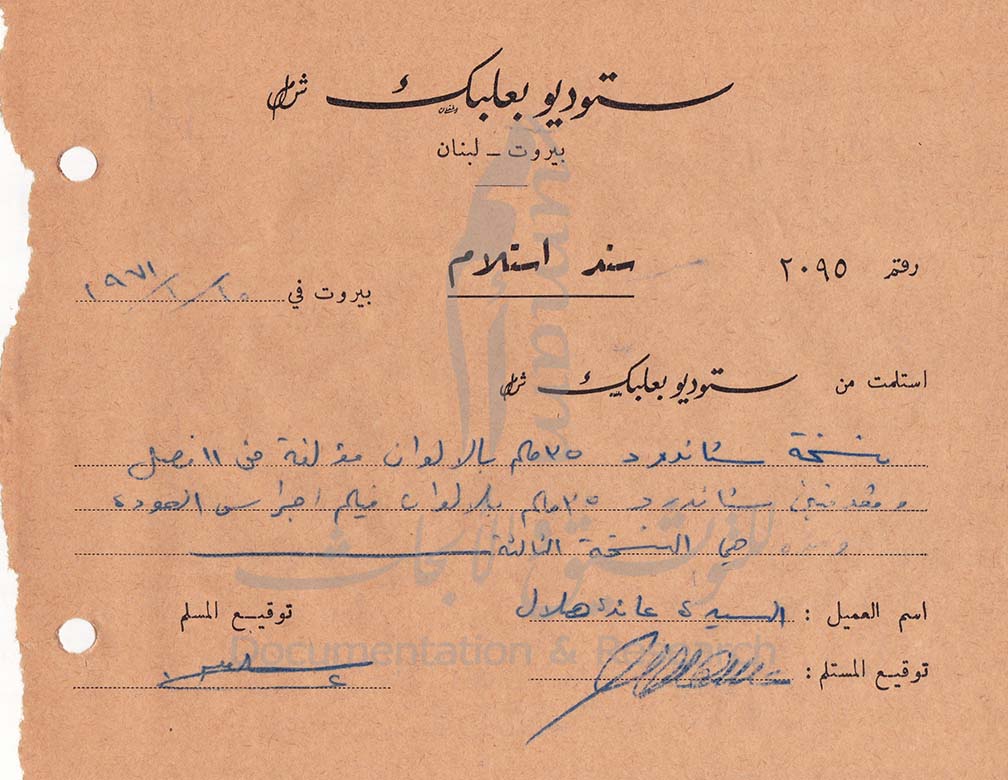 ستوديو بعلبك ش م ل
بيروت - لبنان
رقم ٢٠٩٥
سند استلام
بيروت في ١٩٧١
استلمت من ستوديو بعلبك ش م ل
نسخة ستاندرد ٣٥ ملم بالالوان مؤلفة من ١١ فصل
ومقدمتين ستاندرد ٣٥ ملم بالالوان فيلم اجراس العودة
وهذه هي النسخة الثالثة
اسم العميل : السيدة عائدة هلال
توقيع المسلم
توقيع المستلم :
للتوثيق والأبحاث
Documentation & Research